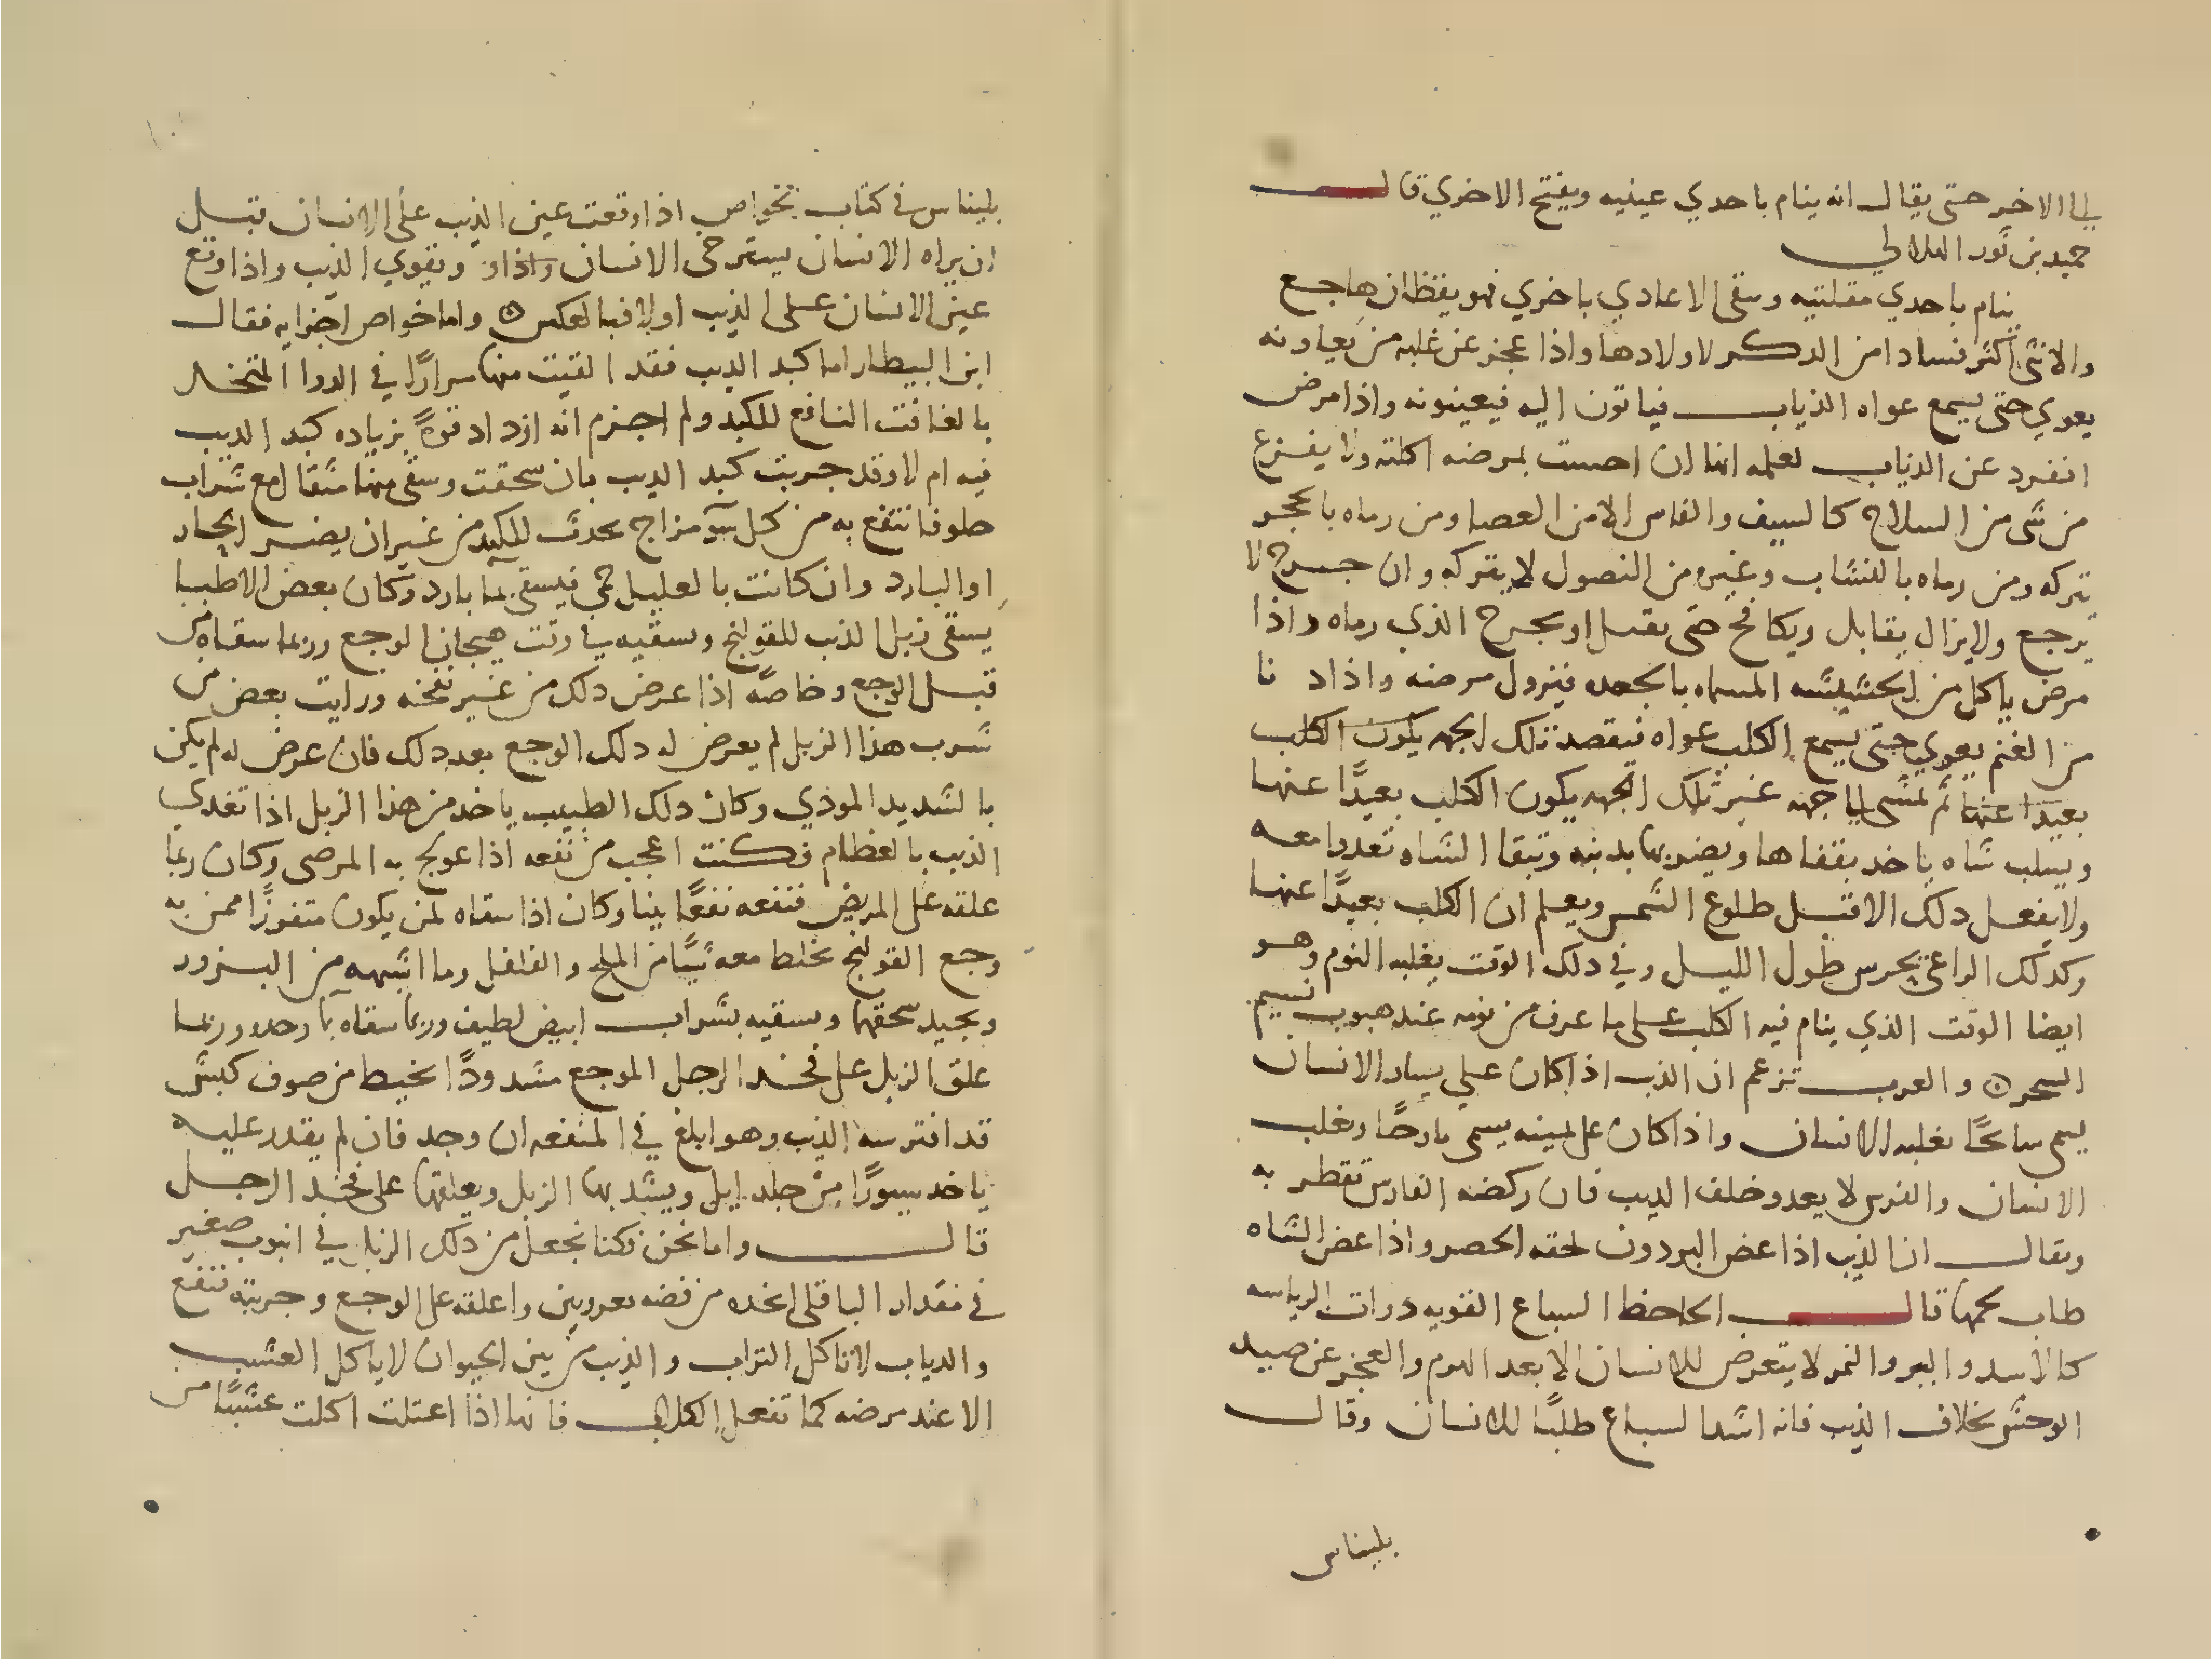 الي الاخر حتى يقال انه ينام باحدي عينيه ويفتح الاخري قال
حميد بن ثور الهلالي
ينام باحدي مقلتيه ويتقى الاعادي باخري فهو يقظان هاجع
والانثى اكثر فسادا من الذكر لاولادها واذا عجز عن غلبه من يعاونه
يعوي حتى يسمع عواه الذياب فياتون اليه فيعينونه واذا مرض
انفرد عن الذياب لعلمه انها ان احست بمرضه اكلته ولا يفزع
من شى من السلاح كالسيف والفاس الا من العصا ومن رماه بالحجر
يتركه ومن رماه بالنشاب وغيره من النصول لا يتركه وان جرح لا
يرجع ولا يزال يقابل ويكافح حتى يقتل او يجرح الذي رماه واذا
مرض ياكل من الحشيشه المسماه بالجعده فيزول مرضه واذا دنا
من الغنم يعوي حتى يسمع الكلب عواه فيقصد تلك الجهه يكون الكلب
بعيدا عنها ثم يمشى الي جهه غير تلك الجهه يكون الكلب بعيدًا عنها
ويسلب شاه ياخد بقفاها ويضربها بدنبه وتبقا الشاه تعدوا معه
ولا يفعل دلك الا قبل طلوع الشمس ويعلم ان الكلب بعيدًا عنها
وكدلك الراعى يحرس طول الليل وفي دلك الوقت يغلبه النوم وهو
ايضا الوقت الذي ينام فيه الكلب على ما عرف من نومه عند هبوب نسيم
السحر ۞ والعرب تزعم ان الذيب اذا كان علي يسار الانسان
يسمى سانحًا يغلبه الانسان واذا كان على يمينه يسمى بارحًا ويغلب
الانسان والفرس لا يعدو خلف الديب فان ركضه الفارس تقطر به
ويقال ان الذيب اذا عض البردون لحقه الحصر واذا عض الشاه
طاب لحمها قال الجاحظ السباع القويه دوات الرياسه
كالاسد والببر والنمر لا يتعرض للانسان الا بعد الهرم والعجز عن صيد
الوحش بخلاف الذيب فانه اشد السباع طلبًا للانسان وقال
بليناس
بليناس في كتاب الخواص اذا وقعت عين الذيب على الانسان قبل
ان يراه الانسان يسترخى الانسان واذا و ويقوي الذيب واذا وقع
عين الانسان على الذيب اولا فبالعكس ۞ واما خواص اجزايه فقال
ابن البيطار اما كبد الديب فقد القيت منها مرارًا في الدوا المتخد
بالغافت النافع للكبد ولم اجزم انه ازداد قوةً بزياده كبد الديب
فيه ام لا وقد جربت كبد الديب بان سحقت وسقى منها مثقال مع شراب
حلو فانتفع به من كل سو مزاج يحدث للكبد من غير ان يضر الحار
او البارد وان كانت بالعليل حمى فيسقى بما بارد وكان بعض الاطبا
يسقى زبل الذيب للقولنج ويسقيه في وقت هيجان الوجع وربما سقاه من
قبل الوجع وخاصًه اذا عرض دلك من غير نفخه ورايت بعض من
شرب هذا الزبل لم يعرض له دلك الوجع بعد دلك فان عرض له لم يكن
بالشديد الموذي وكان دلك الطبيب ياخد من هذا الزبل اذا تغدي
الذيب بالعظام فكنت اعجب من نفعه اذا عولج به المرضى وكان ربما
علقه على المريض فنفعه نفعًا بينا وكان اذا سقاه لمن يكون متفوزًا ممن به
وجع القولنج يخلط معه شيًا من الملح والفلفل وما اشبهه من البزور
ويجيد سحقها ويسقيه بشراب ابيض لطيف وربما سقاه بما وحده وربما
علق الزبل على فخد الرجل الموجع مشدودًا بخيط من صوف كبش
قد افترسه الذيب وهو ابلغ في المنفعه ان وجد فان لم يقدر عليه
ياخد سيورًا من جلد ايل ويشد بها الزبل ويعلقها على فخد الرجل
قال واما نحن فكنا نجعل من دلك الزبل في انبوب صغير
في مقدار الباقلى اتخده من فضه بعروتين واعلقه على الوجع وجربته فنفع
والدياب لا تاكل التراب والذيب من بين الحيوان لا ياكل العشب
الا عند مرضه كما تفعل الكلاب فانها اذا اعتلت اكلت عشبًا من